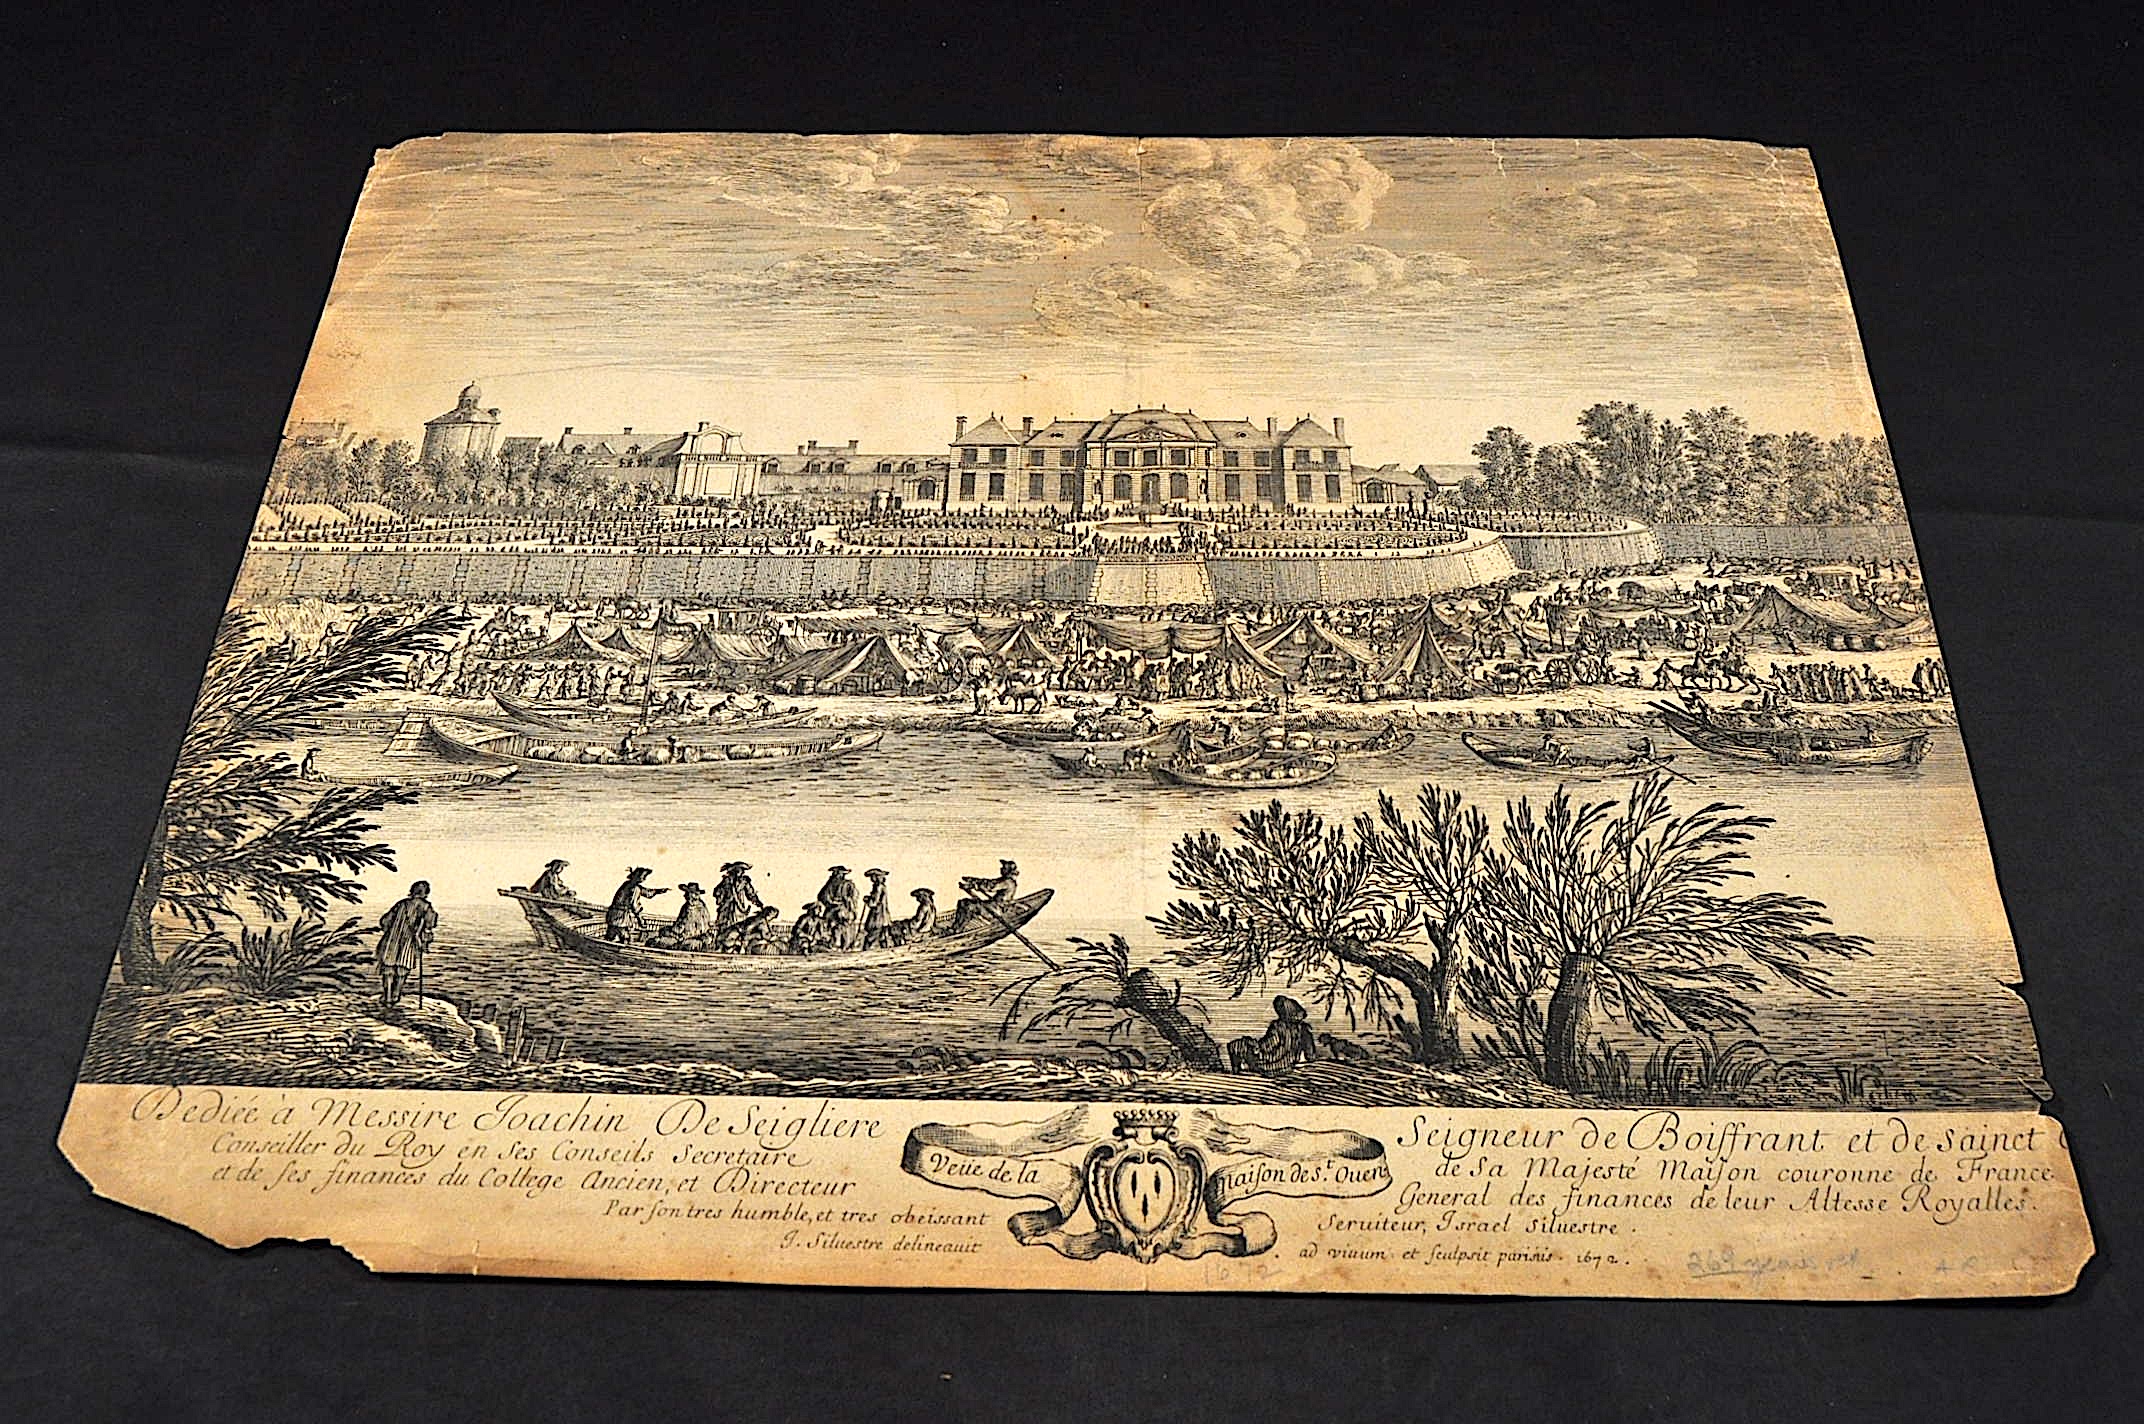 Dediée à Messire Joachin De Seigliere Seigneur de Boiffrant et de Sainct
Conseiller du Roy en ses Conseils Secretaire de Sa Majesté Maison couronne de France
et de ses finances du College Ancien, et Directeur General des finances de leur Altesse Royalles.
Par son tres humble, et tres obeissant Seruiteur, Israel Siluestre.
J. Siluestre delineauit ad viuum et sculpsit parisis. 1672.
Veüe de la maison de St. Ouen
1672
269 years old